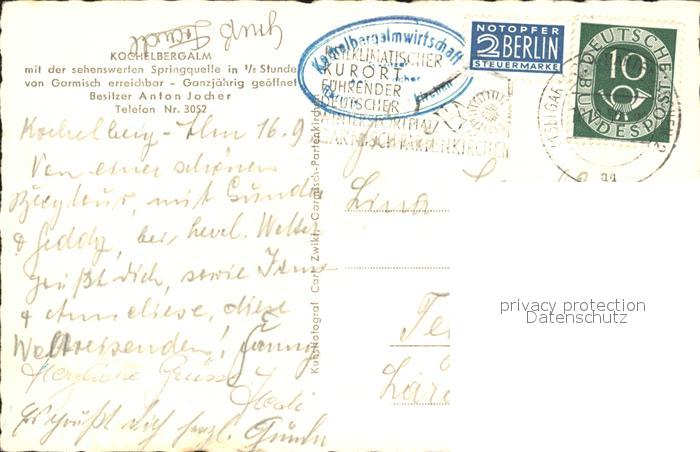 Gruß
KOCHELBERGALM
mit der sehenswerten Springquelle in 1/2 Stunde
von Garmisch erreichbar - Ganzjährig geöffnet
Besitzer Anton Jocher
Telefon Nr. 3052
Kochelberg-Alm 16.9
Von einer schönen
Bergtour, mit Gunda
& Heddy, bei herrl. Wetter
grüßt dich, sowie
& Anneliese, diese
Weltreisenden!
Herzliche Grüsse
Es grüßt dich herzl.
Kunstfotograf Carl Zwikl, Garmisch-Partenkirchen
Kochelbergalmwirtschaft
HEILKLIMATISCHER
KURORT
FÜHRENDER
DEUTSCHER
WINTERSPORTPLATZ
GARMISCH-PARTENKIRCHEN
NOTOPFER
2 BERLIN
STEUERMARKE
DEUTSCHE
BUNDESPOST
10
Lina
privacy protection
Datenschutz